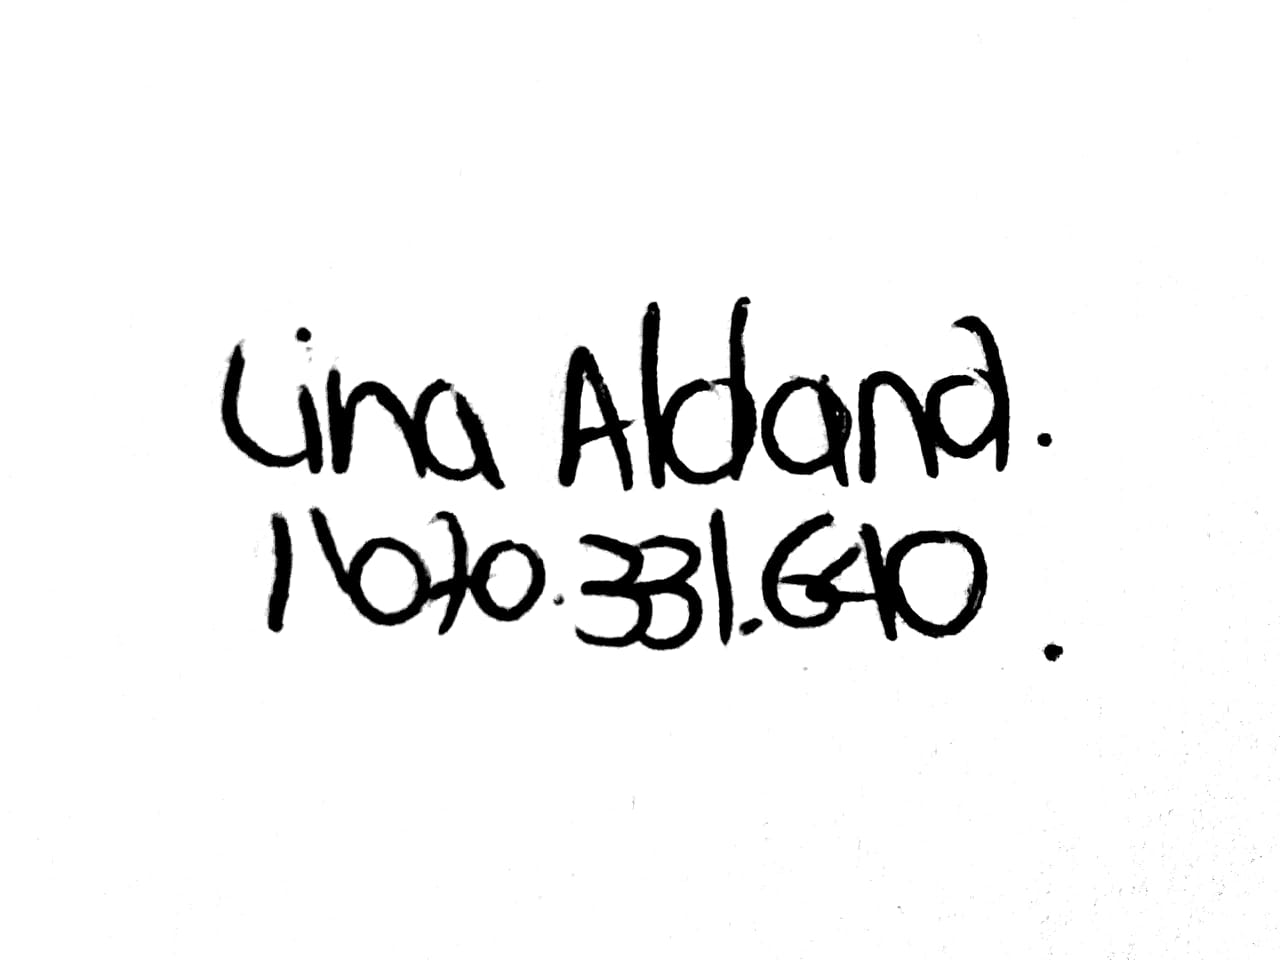 Lina Aldana.
1'070.331.640.